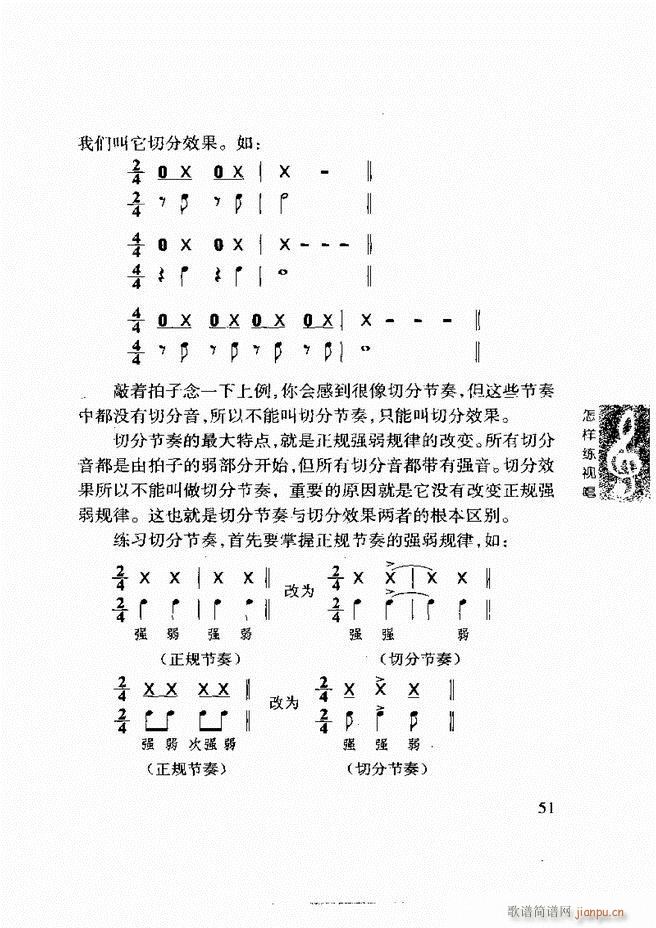 我们叫它切分效果。如：
2/4 0 X 0 X | X - ‖
2/4
4/4 0 X 0 X | X - - - ‖
4/4
4/4 0 X 0 X 0 X 0 X | X - - - ‖
4/4
敲着拍子念一下上例，你会感到很像切分节奏，但这些节奏
中都没有切分音，所以不能叫切分节奏，只能叫切分效果。
切分节奏的最大特点，就是正规强弱规律的改变。所有切分
音都是由拍子的弱部分开始，但所有切分音都带有强音。切分效
果所以不能叫做切分节奏，重要的原因就是它没有改变正规强
弱规律。这也就是切分节奏与切分效果两者的根本区别。
练习切分节奏，首先要掌握正规节奏的强弱规律，如：
2/4 X X | X X ‖ 改为 2/4 X X | X X ‖
2/4 2/4
强 弱 强 弱 强 强 弱
（正规节奏） （切分节奏）
2/4 X X X X ‖ 改为 2/4 X X X ‖
2/4 2/4
强 弱 次强 弱 强 强 弱
（正规节奏） （切分节奏）
怎样练视唱
51
歌谱简谱网 jianpu.cn